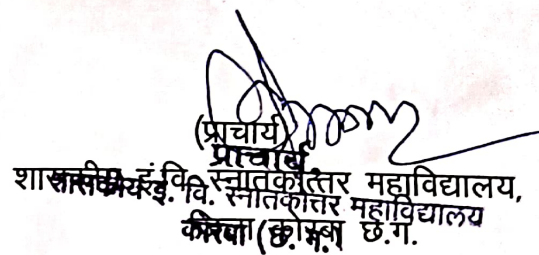 (प्राचार्य)
प्राचार्य
शासकीय इं.वि. स्नातकोत्तर महाविद्यालय,
शासकीय इ. वि. स्नातकोत्तर महाविद्यालय
जिला कोरबा छ.ग.
कोरबा (छ. ग.)